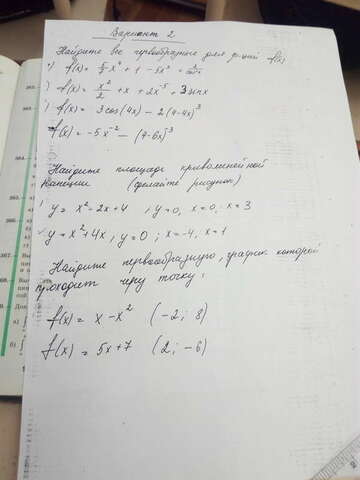 Вариант 2
Найдите все первообразные для ф-ций f(x)
f(x) = x⁴ + 1 - 5x²
f(x) = x²/2 + x + 2x⁻⁵ + 3 sin x
f(x) = 3 cos(4x) - 2(4-4x)³
f(x) = -5x⁻² - (4-6x)³
Найдите площадь криволенейной
трапеции (делайте рисунок)
y = x² - 2x + 4 ; y=0, x=0, x=3
y = x² + 4x ; y=0 ; x=-4, x=1
Найдите первообразную, график которой
проходит через точку:
f(x) = x - x² (-2; 8)
f(x) = 5x+7 (2; -6)
364.
365.
366.
367.
368.
369.
а)
б)